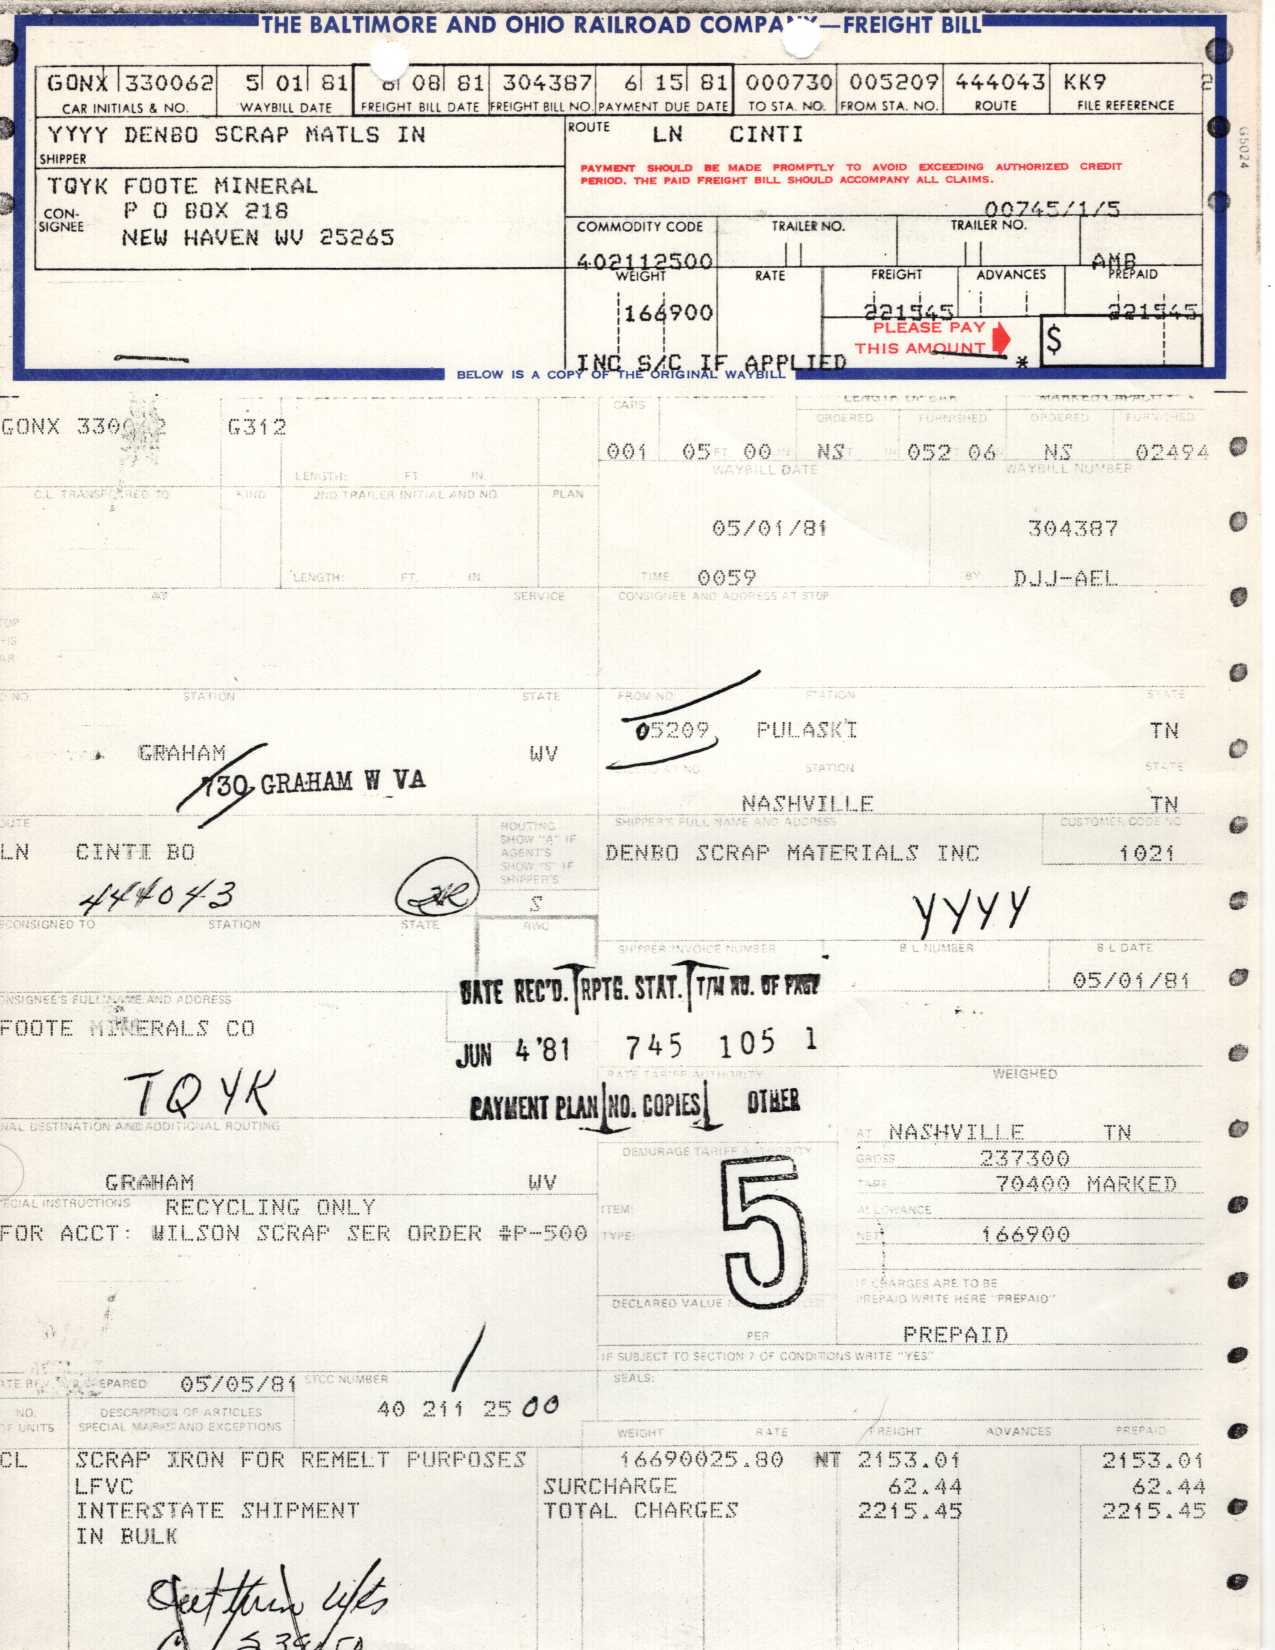 THE BALTIMORE AND OHIO RAILROAD COMPANY—FREIGHT BILL
GONX 330062 5 01 81 6 08 81 304387 6 15 81 000730 005209 444043 KK9 2
CAR INITIALS & NO. WAYBILL DATE FREIGHT BILL DATE FREIGHT BILL NO. PAYMENT DUE DATE TO STA. NO. FROM STA. NO. ROUTE FILE REFERENCE
G5024
YYYY DENBO SCRAP MATLS IN
SHIPPER
ROUTE LN CINTI
PAYMENT SHOULD BE MADE PROMPTLY TO AVOID EXCEEDING AUTHORIZED CREDIT
PERIOD. THE PAID FREIGHT BILL SHOULD ACCOMPANY ALL CLAIMS.
TQYK FOOTE MINERAL
CON-SIGNEE P O BOX 218
NEW HAVEN WV 25265
00745/1/5
COMMODITY CODE TRAILER NO. TRAILER NO.
402112500 AMB
WEIGHT RATE FREIGHT ADVANCES PREPAID
166900 221545 221545
PLEASE PAY
THIS AMOUNT $
*
INC S/C IF APPLIED
BELOW IS A COPY OF THE ORIGINAL WAYBILL
GONX 330062 G312
CARS LENGTH OF CAR MARKED CAPACITY
ORDERED FURNISHED ORDERED FURNISHED
001 05 FT 00 IN NS 052 06 NS 02494
LENGTH: FT. IN. WAYBILL DATE WAYBILL NUMBER
C.L. TRANSFERRED TO KIND 2ND TRAILER INITIAL AND NO. PLAN
05/01/81 304387
LENGTH: FT. IN. TIME 0059 BY DJJ-AEL
AT SERVICE CONSIGNEE AND ADDRESS AT STOP
NO. STATION STATE FROM NO. STATION STATE
05209 PULASKI TN
GRAHAM WV
730 GRAHAM W VA
STATION STATE
NASHVILLE TN
ROUTE ROUTING SHOW "A" IF AGENT'S SHOW "S" IF SHIPPER'S
SHIPPER'S FULL NAME AND ADDRESS CUSTOMER CODE NO.
LN CINTI BO DENBO SCRAP MATERIALS INC 1021
444043
S
YYYY
RECONSIGNED TO STATION STATE RWC
SHIPPER INVOICE NUMBER B L NUMBER B L DATE
05/01/81
DATE REC'D. RPTG. STAT. T/M NO. OF PAGE
CONSIGNEE'S FULL NAME AND ADDRESS
FOOTE MINERALS CO
JUN 4 '81 745 105 1
TQYK
RATE TARIFF AUTHORITY WEIGHED
PAYMENT PLAN NO. COPIES OTHER
FINAL DESTINATION AND ADDITIONAL ROUTING
AT NASHVILLE TN
DEMURAGE TARIFF AUTHORITY
GROSS 237300
GRAHAM WV
5
TARE 70400 MARKED
SPECIAL INSTRUCTIONS RECYCLING ONLY
ITEM: ALLOWANCE
FOR ACCT: WILSON SCRAP SER ORDER #P-500
TYPE: NET 166900
IF CHARGES ARE TO BE
PREPAID WRITE HERE "PREPAID"
DECLARED VALUE
PER PREPAID
IF SUBJECT TO SECTION 7 OF CONDITIONS WRITE "YES"
PREPARED 05/05/81 STCC NUMBER SEALS:
40 211 25 00
NO. OF UNITS DESCRIPTION OF ARTICLES SPECIAL MARKS AND EXCEPTIONS
WEIGHT RATE FREIGHT ADVANCES PREPAID
CL SCRAP IRON FOR REMELT PURPOSES 16690025.80 NT 2153.01 2153.01
LFVC SURCHARGE 62.44 62.44
INTERSTATE SHIPMENT TOTAL CHARGES 2215.45 2215.45
IN BULK